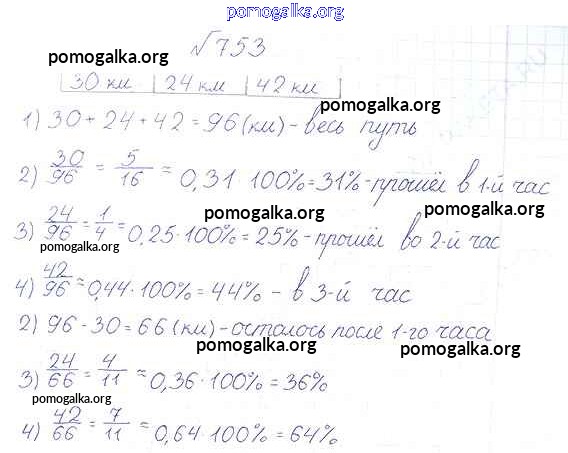 pomogalka.org
№753
pomogalka.org
30 км | 24 км | 42 км
pomogalka.org
1) 30 + 24 + 42 = 96 (км) - весь путь
2) 30/96 = 5/16 = 0,31 100% = 31% - прошёл в 1-й час
pomogalka.org pomogalka.org
3) 24/96 = 1/4 = 0,25 · 100% = 25% - прошёл во 2-й час
pomogalka.org
4) 42/96 ≈ 0,44 · 100% = 44% - в 3-й час
2) 96 - 30 = 66 (км) - осталось после 1-го часа
pomogalka.org pomogalka.org
3) 24/66 = 4/11 ≈ 0,36 · 100% = 36%
pomogalka.org
4) 42/66 = 7/11 ≈ 0,64 · 100% = 64%